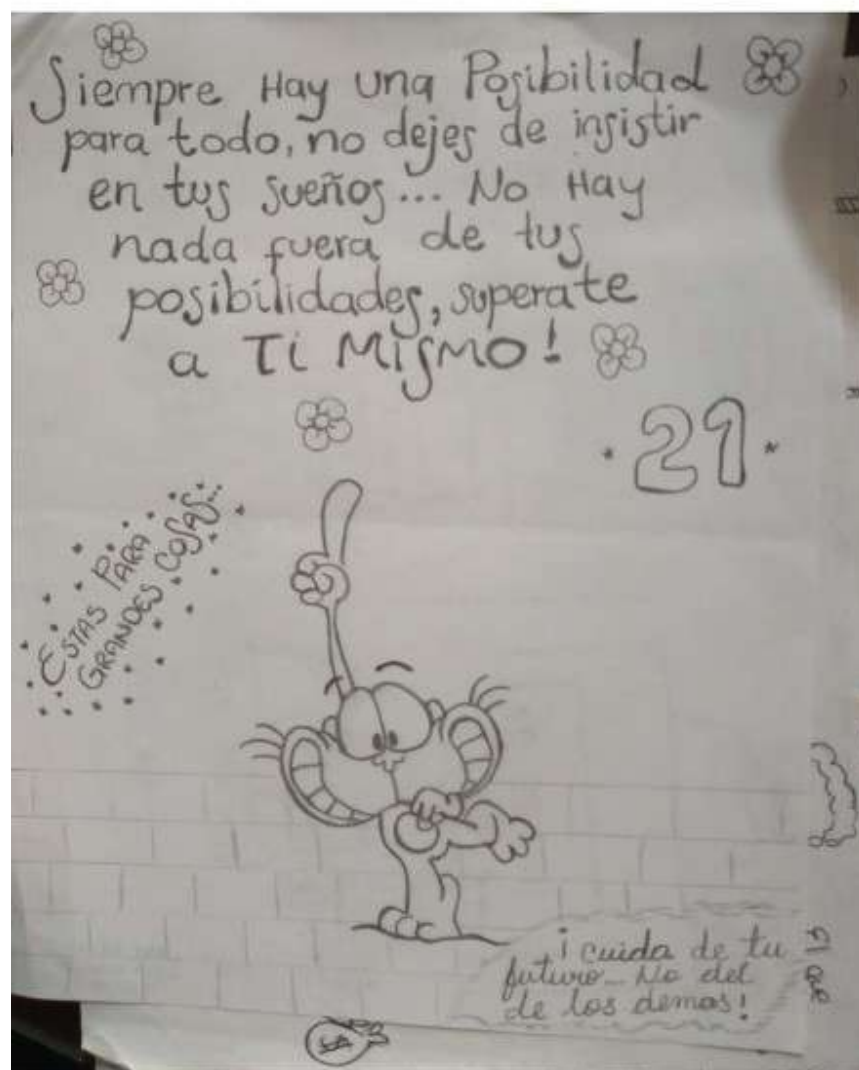 Siempre Hay una Posibilidad
para todo, no dejes de insistir
en tus sueños... No Hay
nada fuera de tus
posibilidades, superate
a Ti MisMO!
21
ESTAS PARA
GRANDES COSAS...
¡cuida de tu
futuro... No del
de los demas!